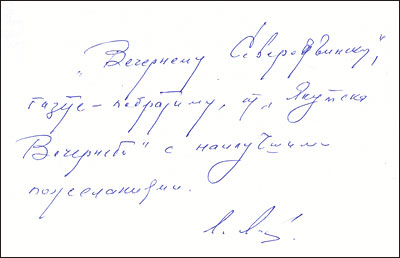 "Вечернему Северодвинску",
газете-побратиму, от "Якутска
Вечернего" с наилучшими
пожеланиями.